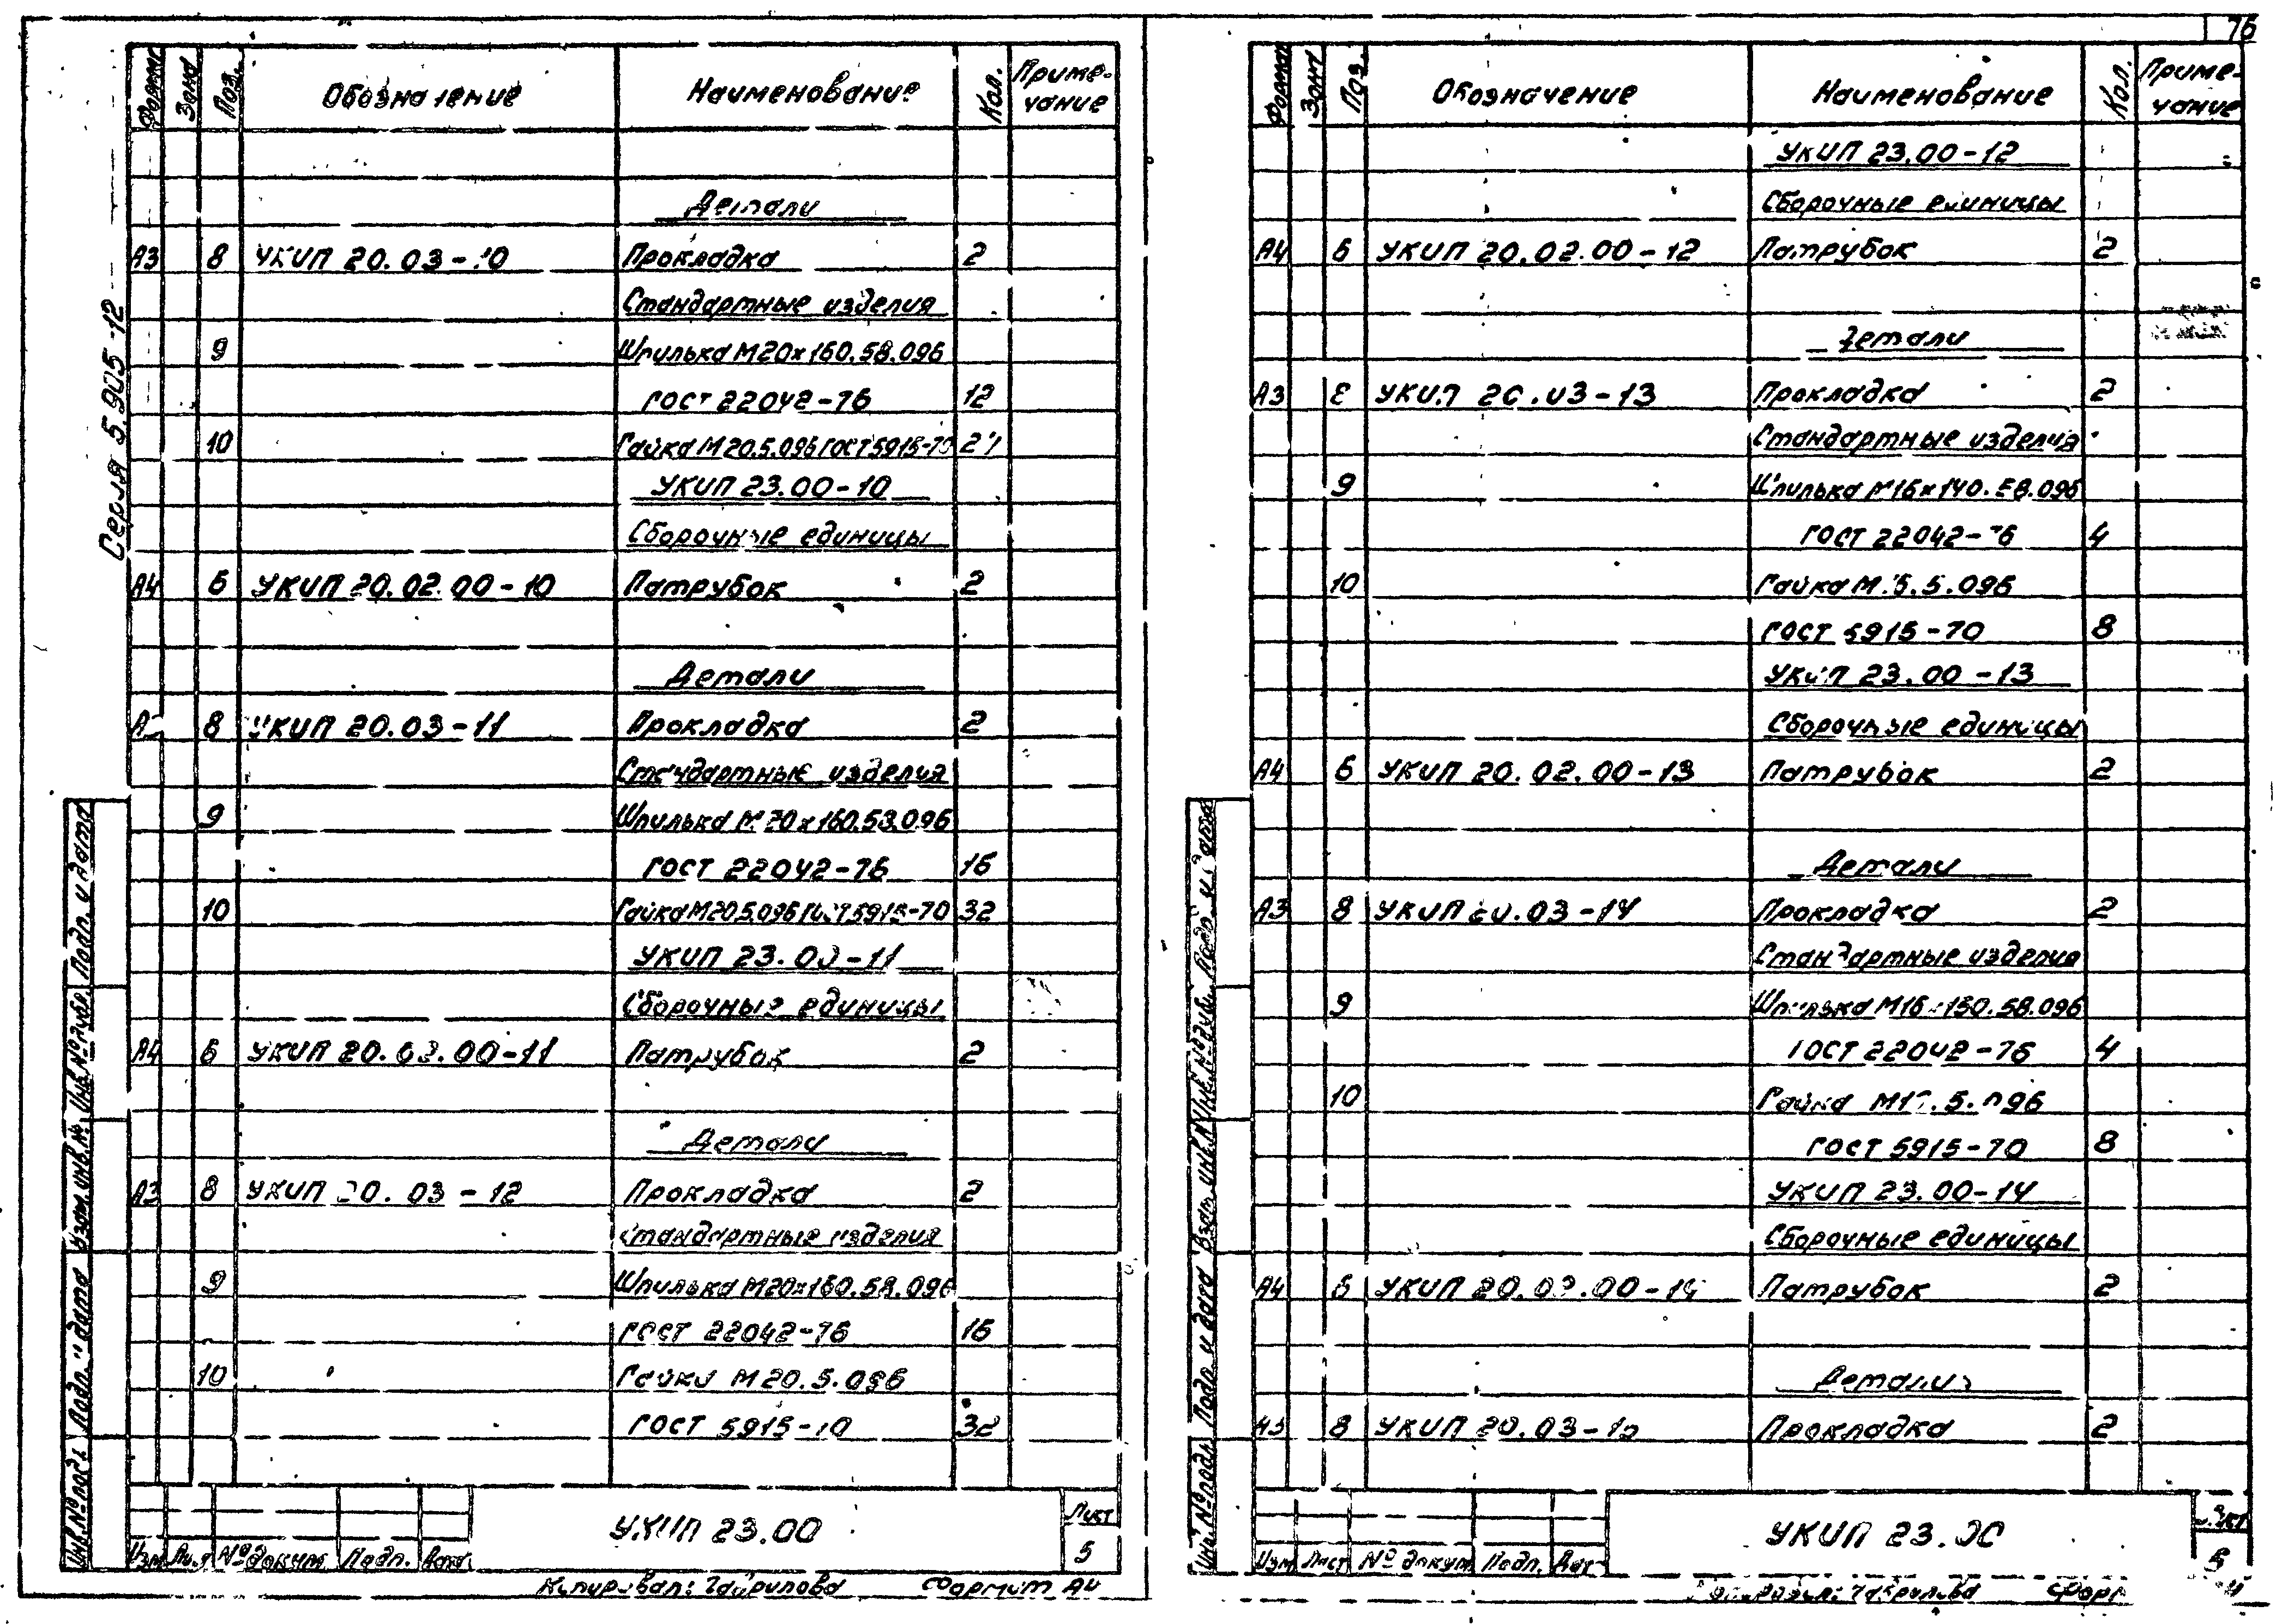 76
Серия 5.905-12
Формат Зона Поз. Обозначение Наименование Кол. Приме-
чание
Детали
А3 8 УКИП 20.03-10 Прокладка 2
Стандартные изделия
9 Шпилька М20х160.58.096
ГОСТ 22042-76 12
10 Гайка М20.5.096 ГОСТ 5915-70 24
УКИП 23.00-10
Сборочные единицы
А4 6 УКИП 20.02.00-10 Патрубок 2
Детали
8 УКИП 20.03-11 Прокладка 2
Стандартные изделия
9 Шпилька М20х160.58.096
ГОСТ 22042-76 16
10 Гайка М20.5.096 ГОСТ 5915-70 32
УКИП 23.00-11
Сборочные единицы
А4 6 УКИП 20.02.00-11 Патрубок 2
Детали
А3 8 УКИП 20.03-12 Прокладка 2
Стандартные изделия
9 Шпилька М20х160.58.096
ГОСТ 22042-76 16
10 Гайка М20.5.096
ГОСТ 5915-70 32
Инв.№подл. Подп. и дата Взам.инв.№ Инв.№дубл. Подп. и дата
Изм Лист №докум. Подп. Дата
УКИП 23.00
Лист
5
Копировал: Гаврилова Формат А4
Формат Зона Поз. Обозначение Наименование Кол. Приме-
чание
УКИП 23.00-12
Сборочные единицы
А4 6 УКИП 20.02.00-12 Патрубок 2
Детали
А3 8 УКИП 20.03-13 Прокладка 2
Стандартные изделия
9 Шпилька М16х140.58.096
ГОСТ 22042-76 4
10 Гайка М16.5.096
ГОСТ 5915-70 8
УКИП 23.00-13
Сборочные единицы
А4 6 УКИП 20.02.00-13 Патрубок 2
Детали
А3 8 УКИП 20.03-14 Прокладка 2
Стандартные изделия
9 Шпилька М16х150.58.096
ГОСТ 22042-76 4
10 Гайка М16.5.096
ГОСТ 5915-70 8
УКИП 23.00-14
Сборочные единицы
А4 6 УКИП 20.02.00-14 Патрубок 2
Детали
А3 8 УКИП 20.03-15 Прокладка 2
Инв.№подл. Подп. и дата Взам.инв.№ Инв.№дубл. Подп. и дата
Изм Лист №докум. Подп. Дата
УКИП 23.00
Лист
Копировал: Гаврилова